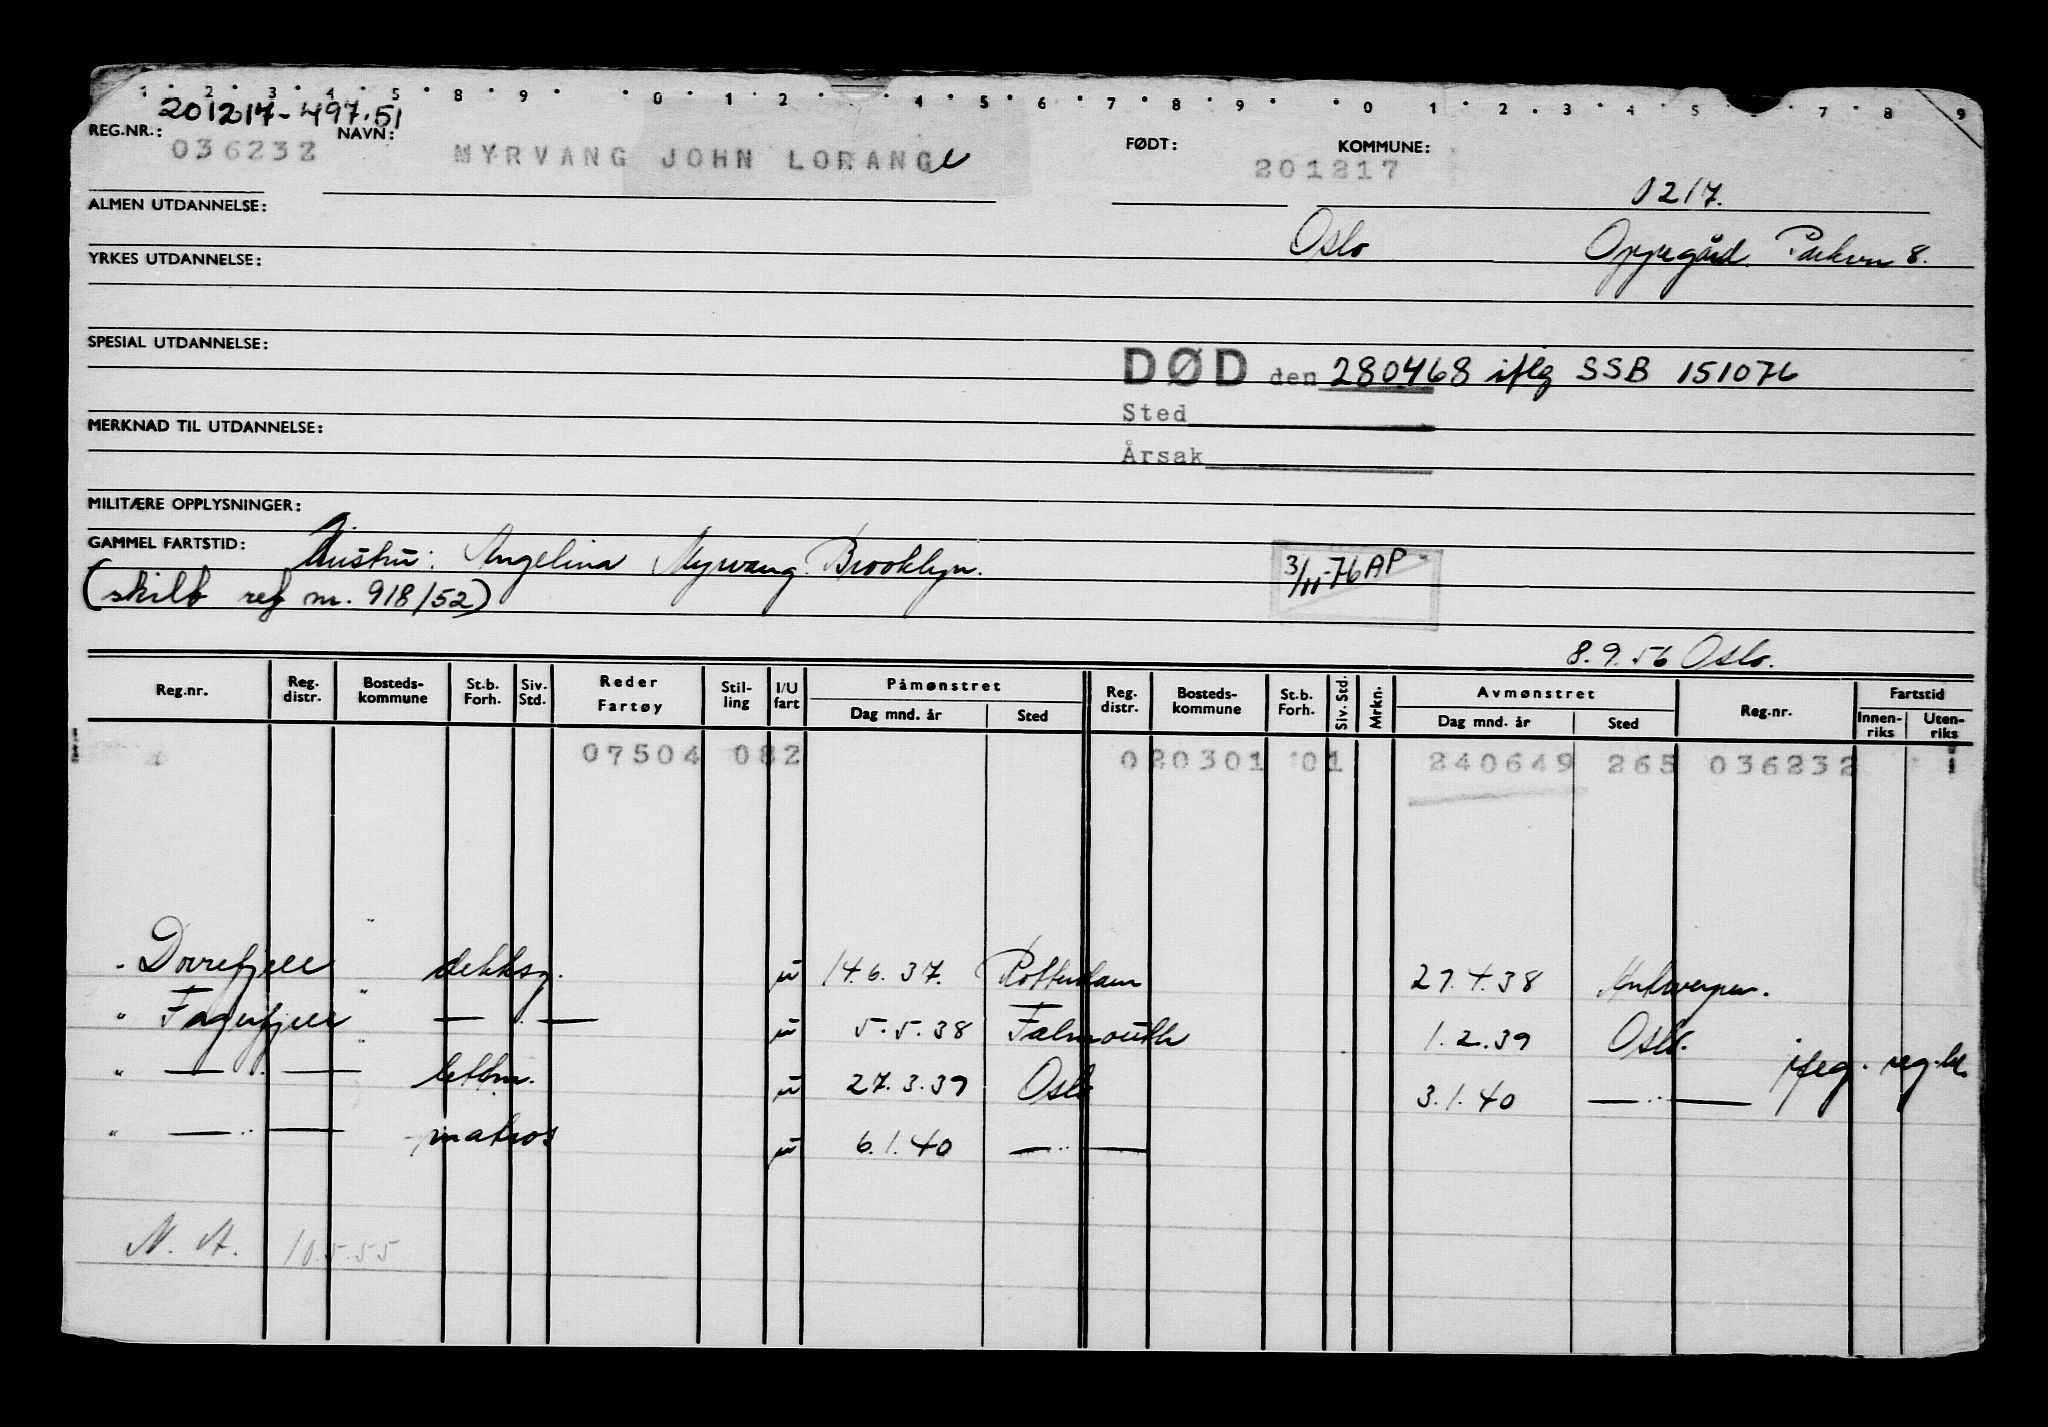 1 2 3 4 5 8 9 0 1 2 4 5 6 7 8 9 0 1 2 3 4 5 7 8 9
201217-497.51
REG.NR.: 036232 NAVN: MYRVANG JOHN LORANGE FØDT: 201217 KOMMUNE:
0217.
ALMEN UTDANNELSE:
Oslo Oppegård Parkvn 8.
YRKES UTDANNELSE:
SPESIAL UTDANNELSE:
DØD den 280468 iflg SSB 151076
Sted
MERKNAD TIL UTDANNELSE:
Årsak
MILITÆRE OPPLYSNINGER:
GAMMEL FARTSTID: Hustru: Angelina Myrvang. Brooklyn.
3/11-76 AP
(skilt ref nr. 918/52)
8.9.56 Oslo.
Reg.nr. Reg. distr. Bosteds-kommune St.b. Forh. Siv. Std. Reder Fartøy Stil-ling I/U fart Påmønstret Dag mnd. år Sted Reg. distr. Bosteds-kommune St.b. Forh. Siv. Std. Mrkn. Avmønstret Dag mnd. år Sted Reg.nr. Fartstid Innen-riks Uten-riks
07504 082 020301 01 240649 265 036232
" Dovrefjell " dekksg. u 14.6.37. Rotterdam 27.4.38 Antwerpen.
" Fagerfjell " — " — u 5.5.38 Falmouth 1.2.39 Oslo.
" — " — " lettm. u 27.3.39 Oslo 3.1.40 — " — ifølg. reg.kl.
" — " — matros u 6.1.40 — " —
N. A. 10.5.55